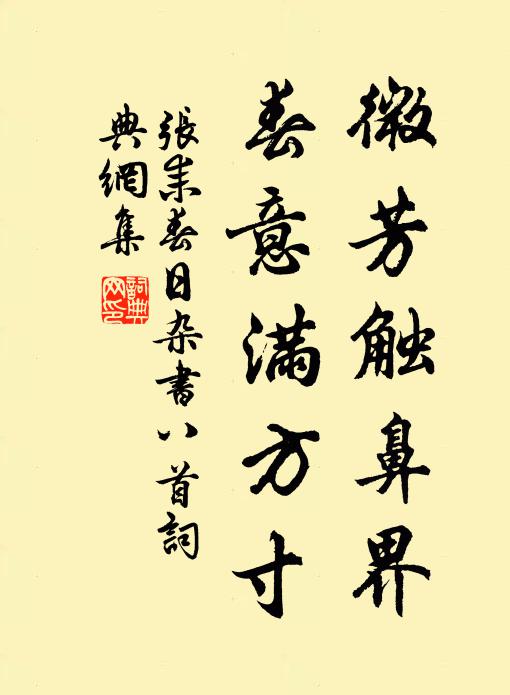 微芳触鼻界
春意满方寸
張耒春日杂書八首詞
典網集
詞典网印